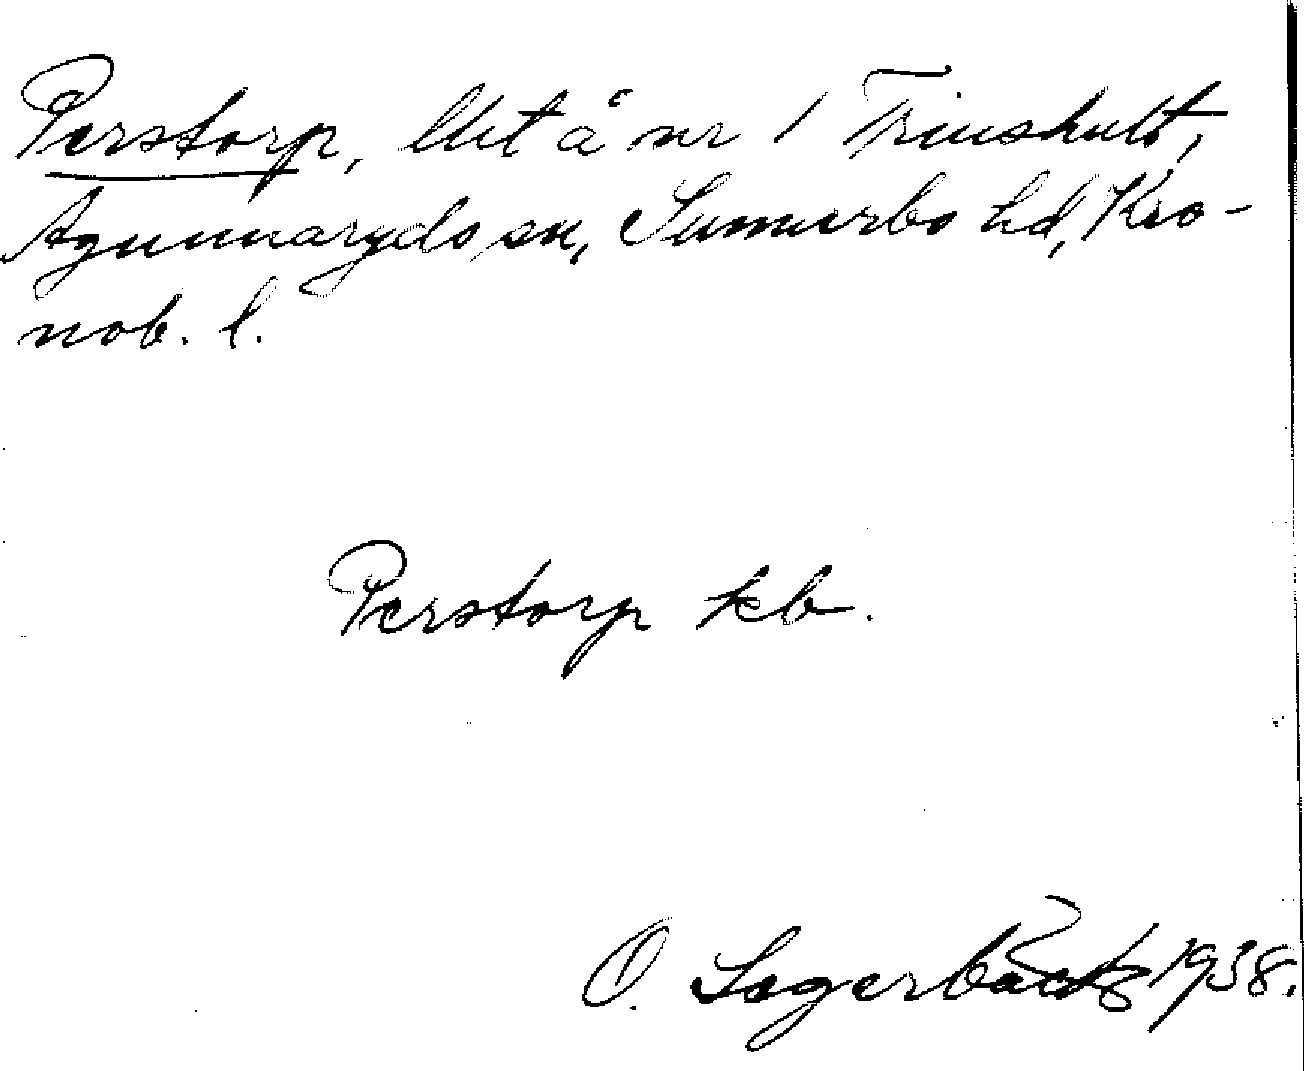 Perstorp, å nr 1 Trinshult,
Agunnaryds sn, Sunnerbo hd, Kro-
nob. l.
Perstorp kb.
O. Lagerbäck 1938.